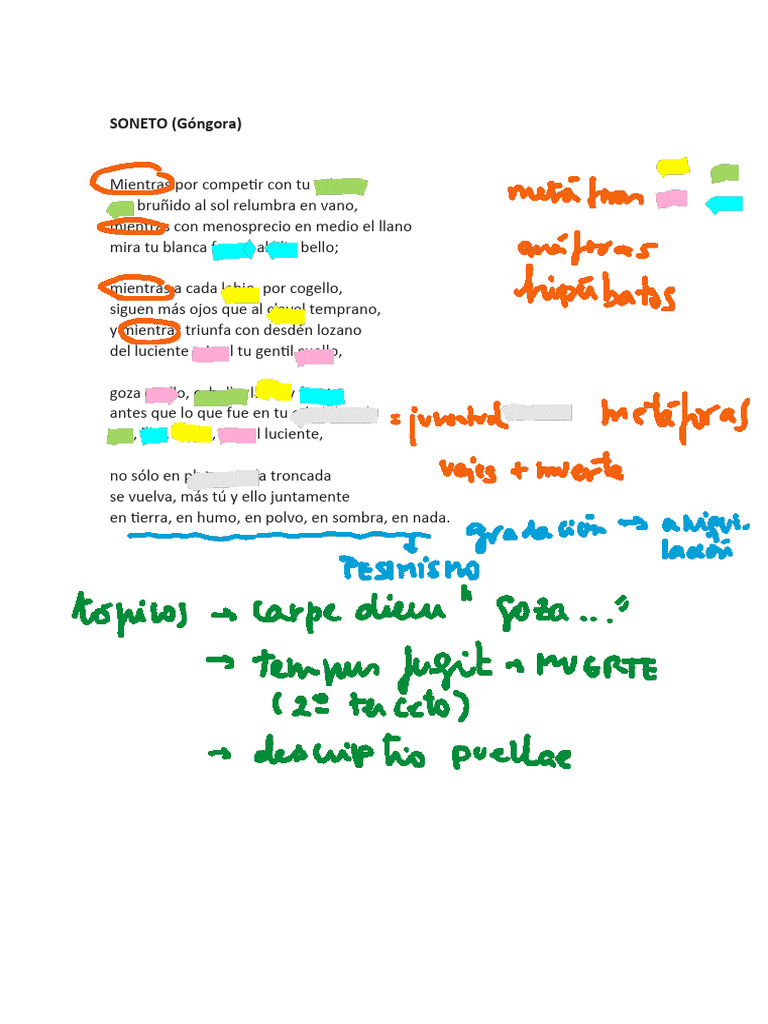 SONETO (Góngora)
Mientras por competir con tu
bruñido al sol relumbra en vano,
mientras con menosprecio en medio el llano
mira tu blanca bello;
metáforas
anáforas
hipérbatos
mientras a cada labio, por cogello,
siguen más ojos que al clavel temprano,
y mientras triunfa con desdén lozano
del luciente tu gentil cuello,
goza y
antes que lo que fue en tu
= juventud
metáforas
luciente,
vejez + muerte
no sólo en troncada
se vuelva, más tú y ello juntamente
en tierra, en humo, en polvo, en sombra, en nada.
gradación → aniqui-
lación
PESIMISMO
tópicos → carpe diem "goza..."
→ tempus fugit → MUERTE
(2º terceto)
→ descriptio puellae